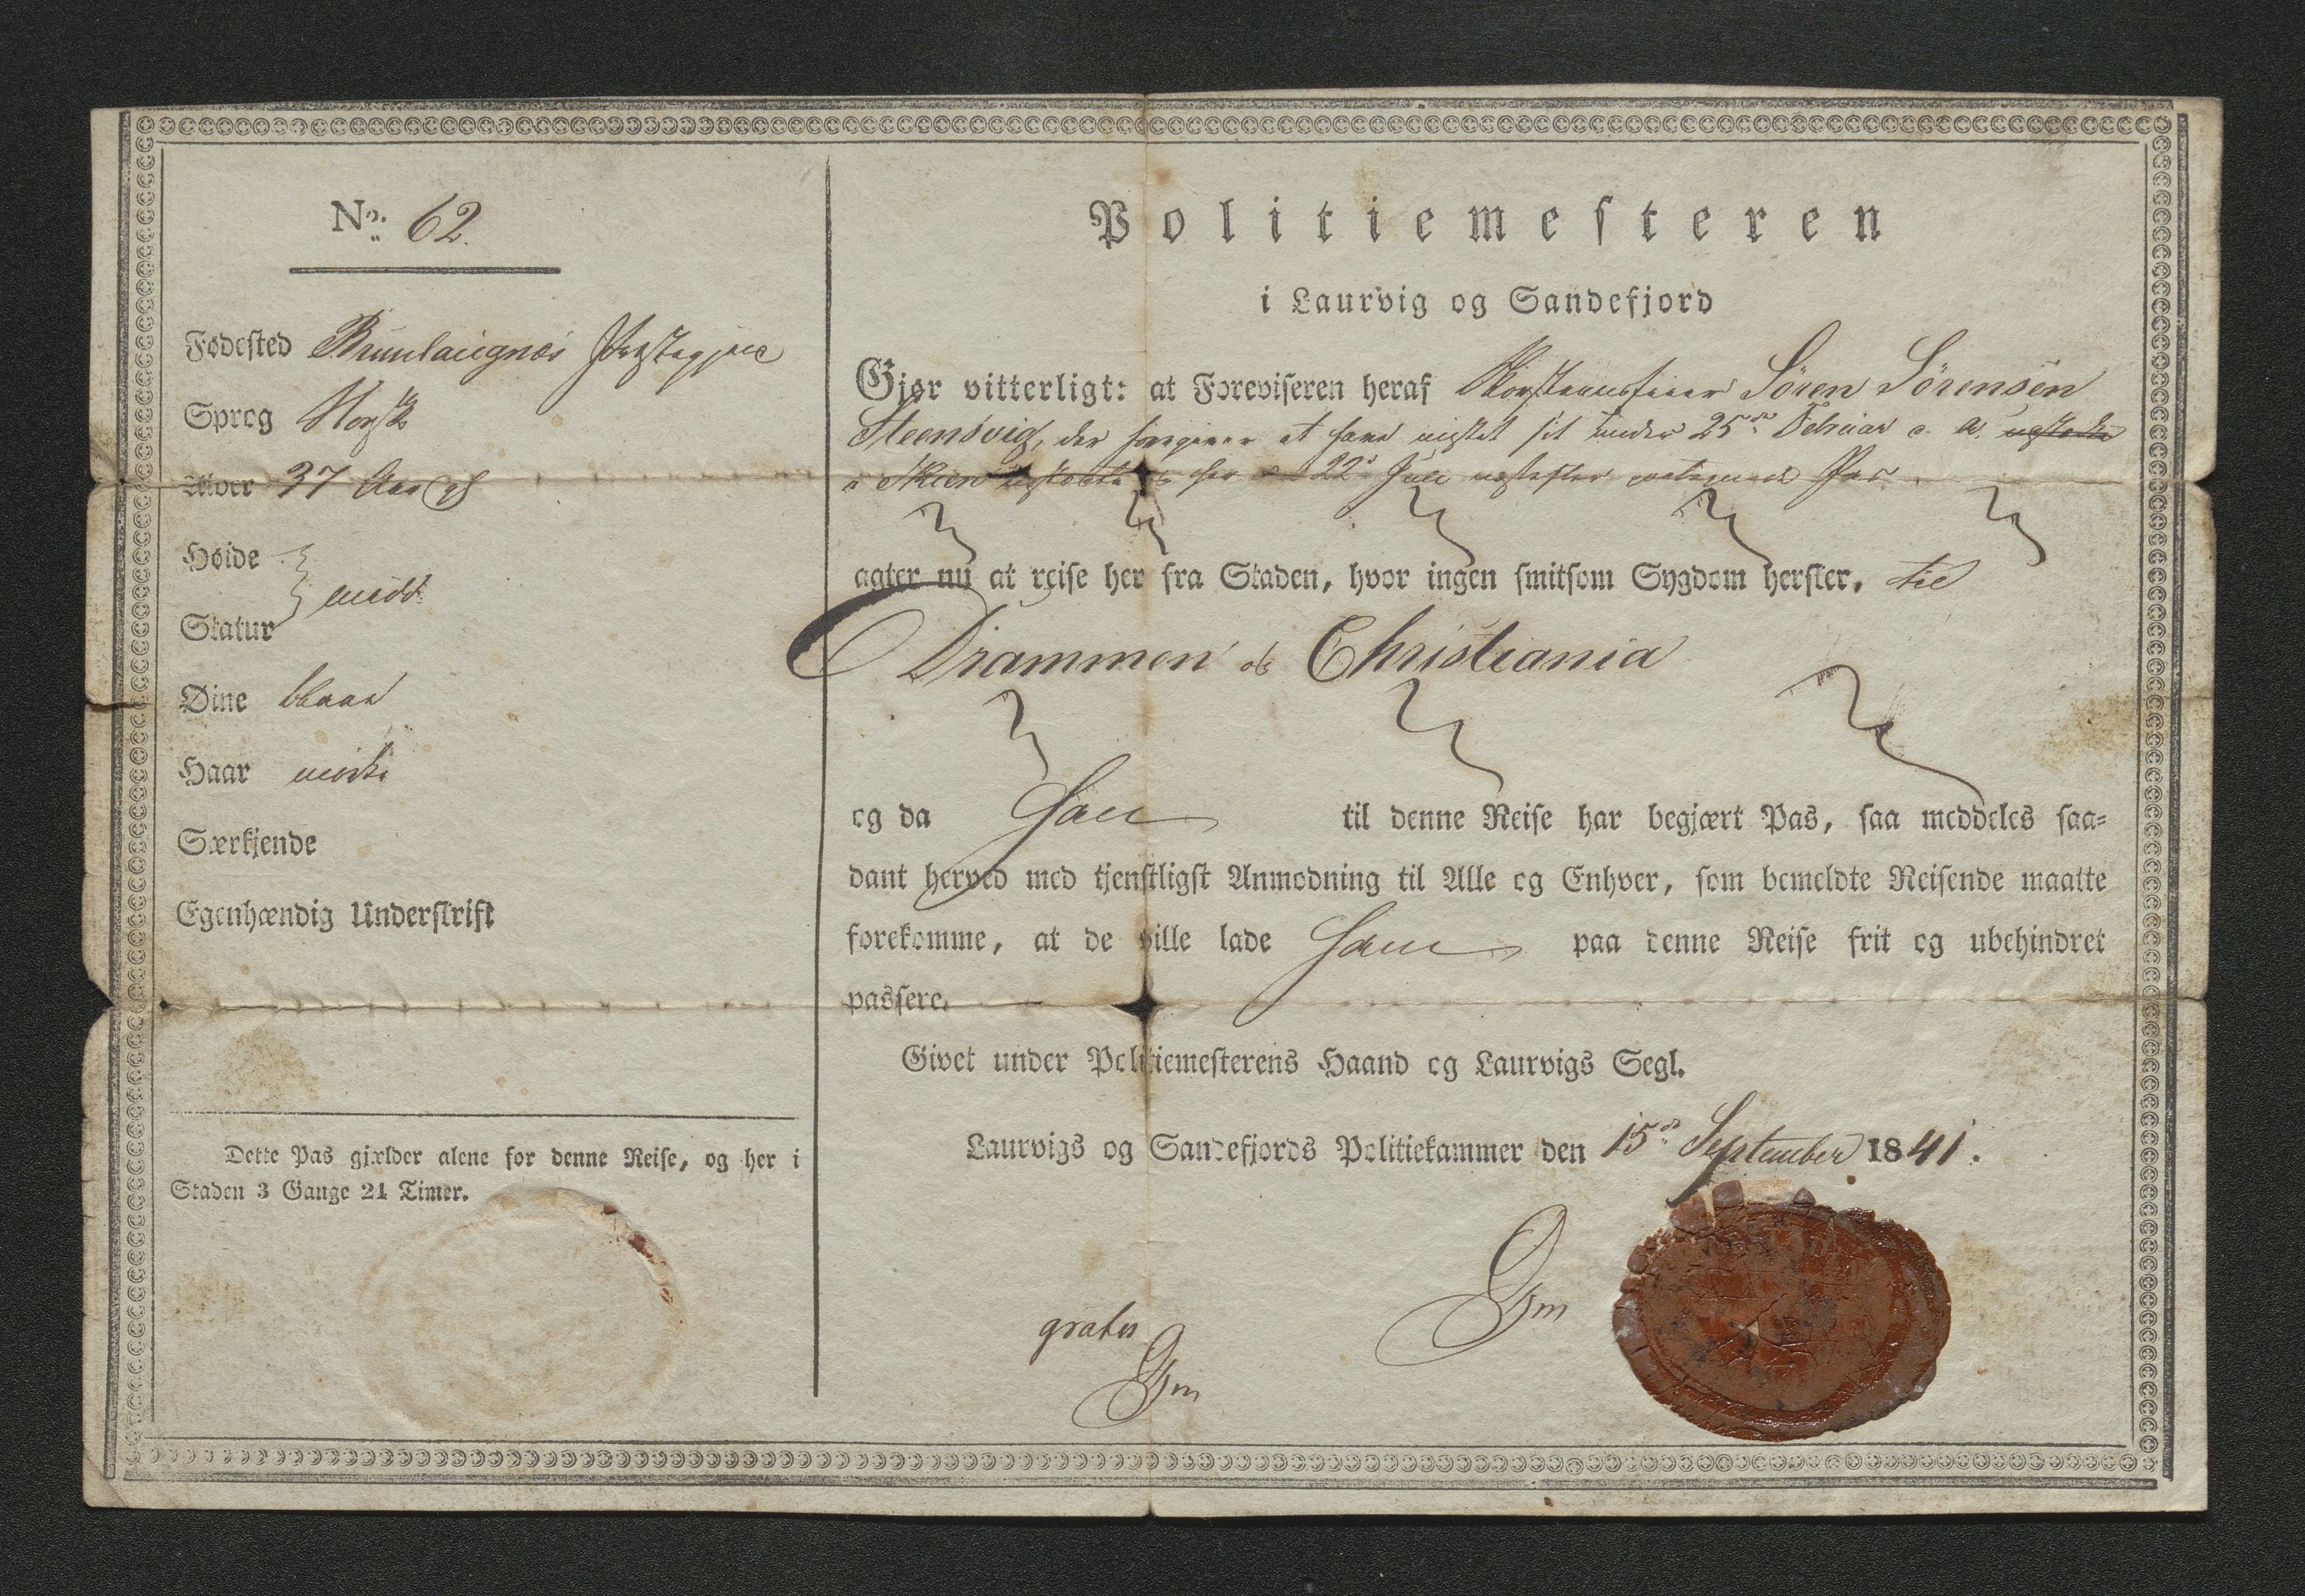 No. 62.
Fødested Brunlaugnæs Præstegjæld
Sprog Norsk
Alder 37 Aar
Høide
Statur middl
Øine blaae
Haar mørkt
Særkjende
Egenhændig Underskrift
Dette Pas gjælder alene for denne Reise, og her i
Staden 3 Gange 24 Timer.
Politiemesteren
i Laurvig og Sandefjord
Gjør vitterligt: at Foreviseren heraf Sören Sörensen
Steensvig, der foregiver at have mistet sit under 25de Februar d. A.
i Skien her 22de Juli Pas
agter nu at reise her fra Staden, hvor ingen smitsom Sygdom hersker, til
Drammen & Christiania
og da han til denne Reise har begjært Pas, saa meddeles saa-
dant herved med tjenstligst Anmodning til Alle og Enhver, som bemeldte Reisende maatte
forekomme, at de ville lade ham paa denne Reise frit og ubehindret
passere.
Givet under Politiemesterens Haand og Laurvigs Segl.
Laurvigs og Sandefjords Politiekammer den 15de September 1841.
Gm
gratis
Gm